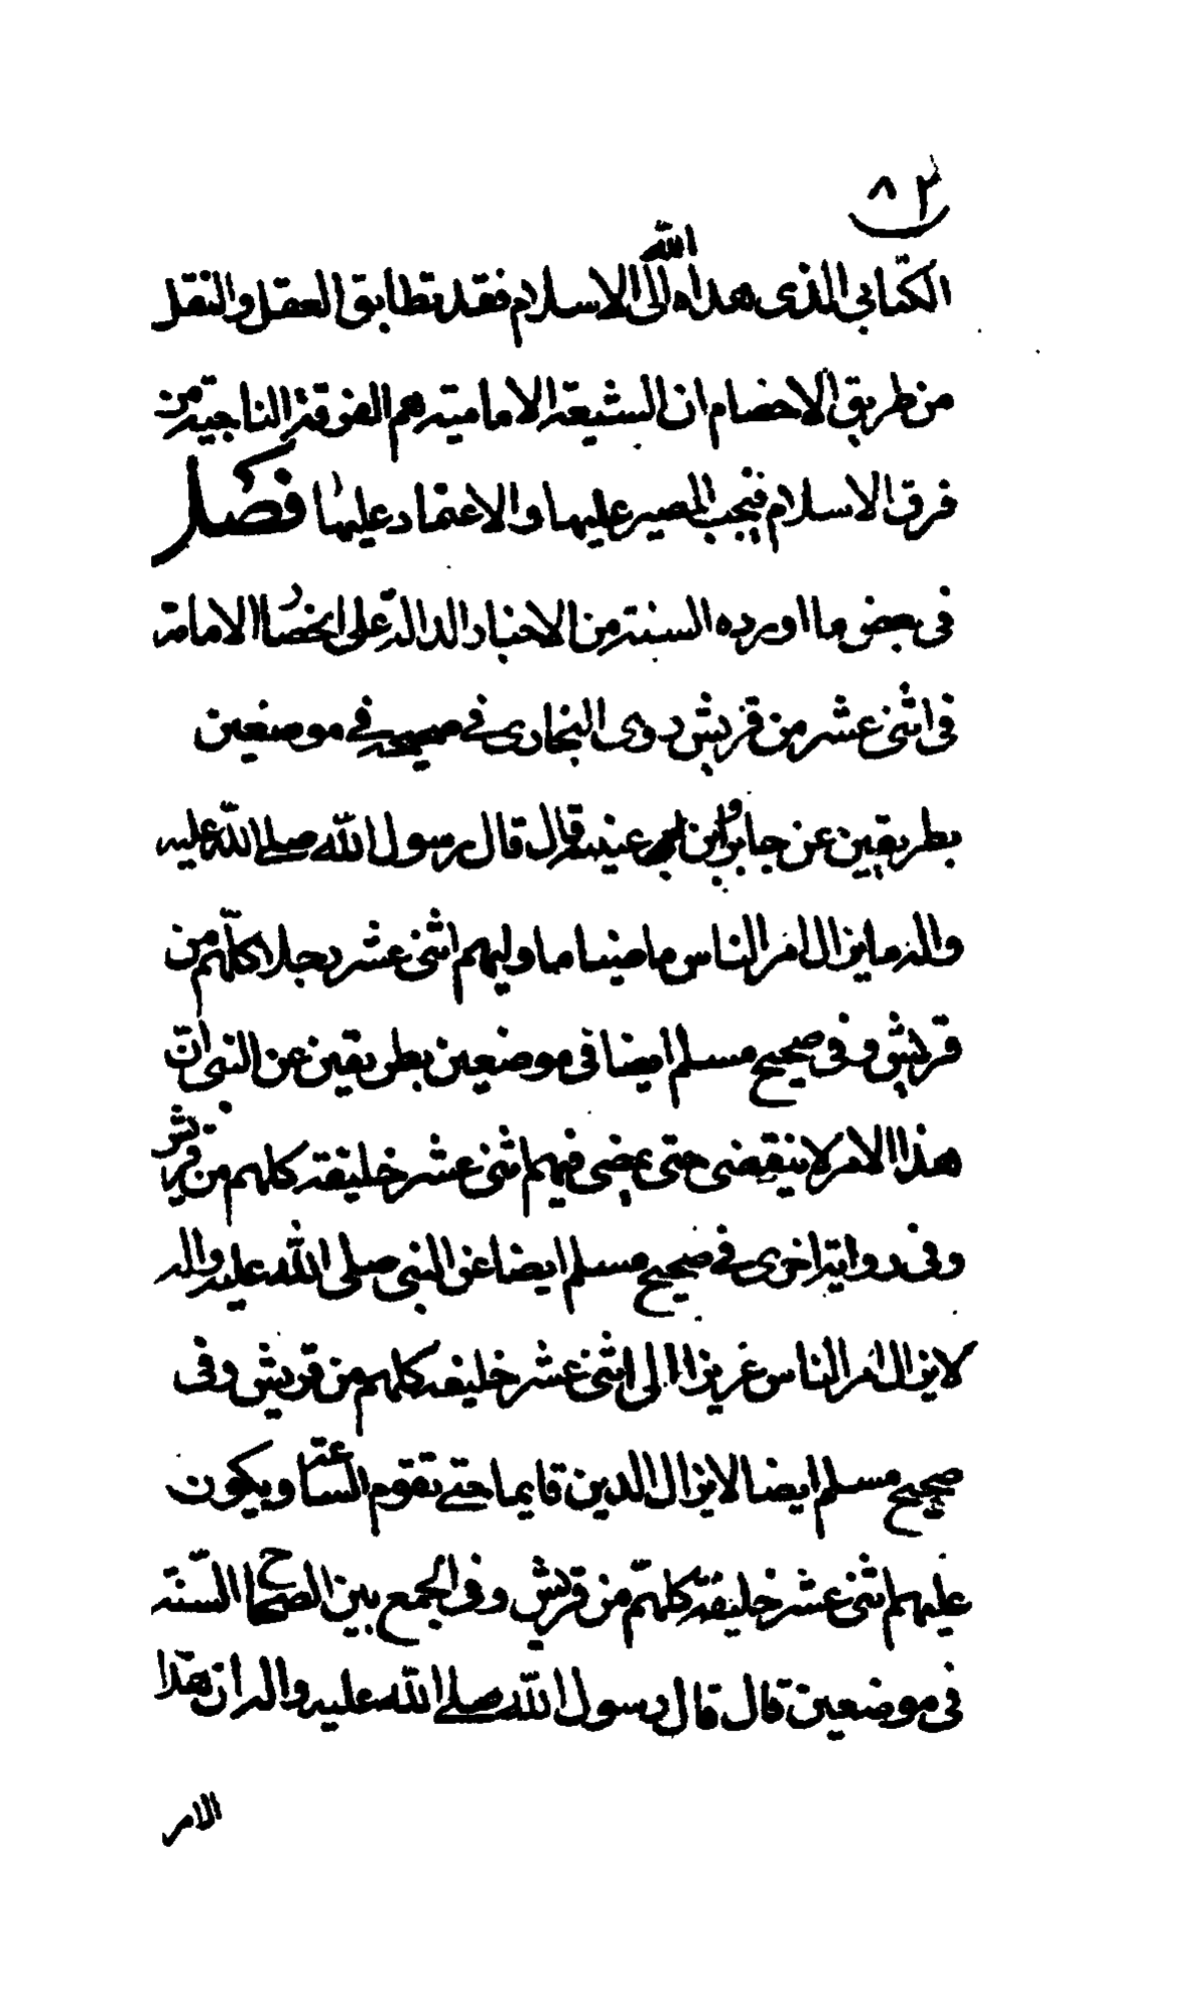 ٨٢
الكتابي الذي هداه الله الى الاسلام فقد تطابق العقل والنقل
من طريق الاخصام ان الشيعة الامامية هم الفرقة الناجية من
فرق الاسلام فيجب المصير عليها والاعتماد عليها فصل
في بعض ما اورده السنة من الاخبار الدالة على انحصار الامامة
في اثنى عشر من قريش روى البخارى في صحيحه في موضعين
بطريقين عن جابر وابن عيينة قال قال رسول الله صلى الله عليه
واله ما يزال امر الناس ماضيا ما وليهم اثنى عشر رجلا كلهم من
قريش وفى صحيح مسلم ايضا فى موضعين بطريقين عن النبى ان
هذا الامر لا ينقضى حتى يمضى فيهم اثنى عشر خليفة كلهم من قريش
وفى رواية اخرى في صحيح مسلم ايضا عن النبى صلى الله عليه واله
لا يزال امر الناس عزيزا الى اثنى عشر خليفه كلهم من قريش وفى
صحيح مسلم ايضا لا يزال الدين قايما حتى تقوم الساعة ويكون
عليهم اثنى عشر خليفة كلهم من قريش وفى الجمع بين الصحاح الستة
فى موضعين قال قال رسول الله صلى الله عليه واله ان هذا
الامر